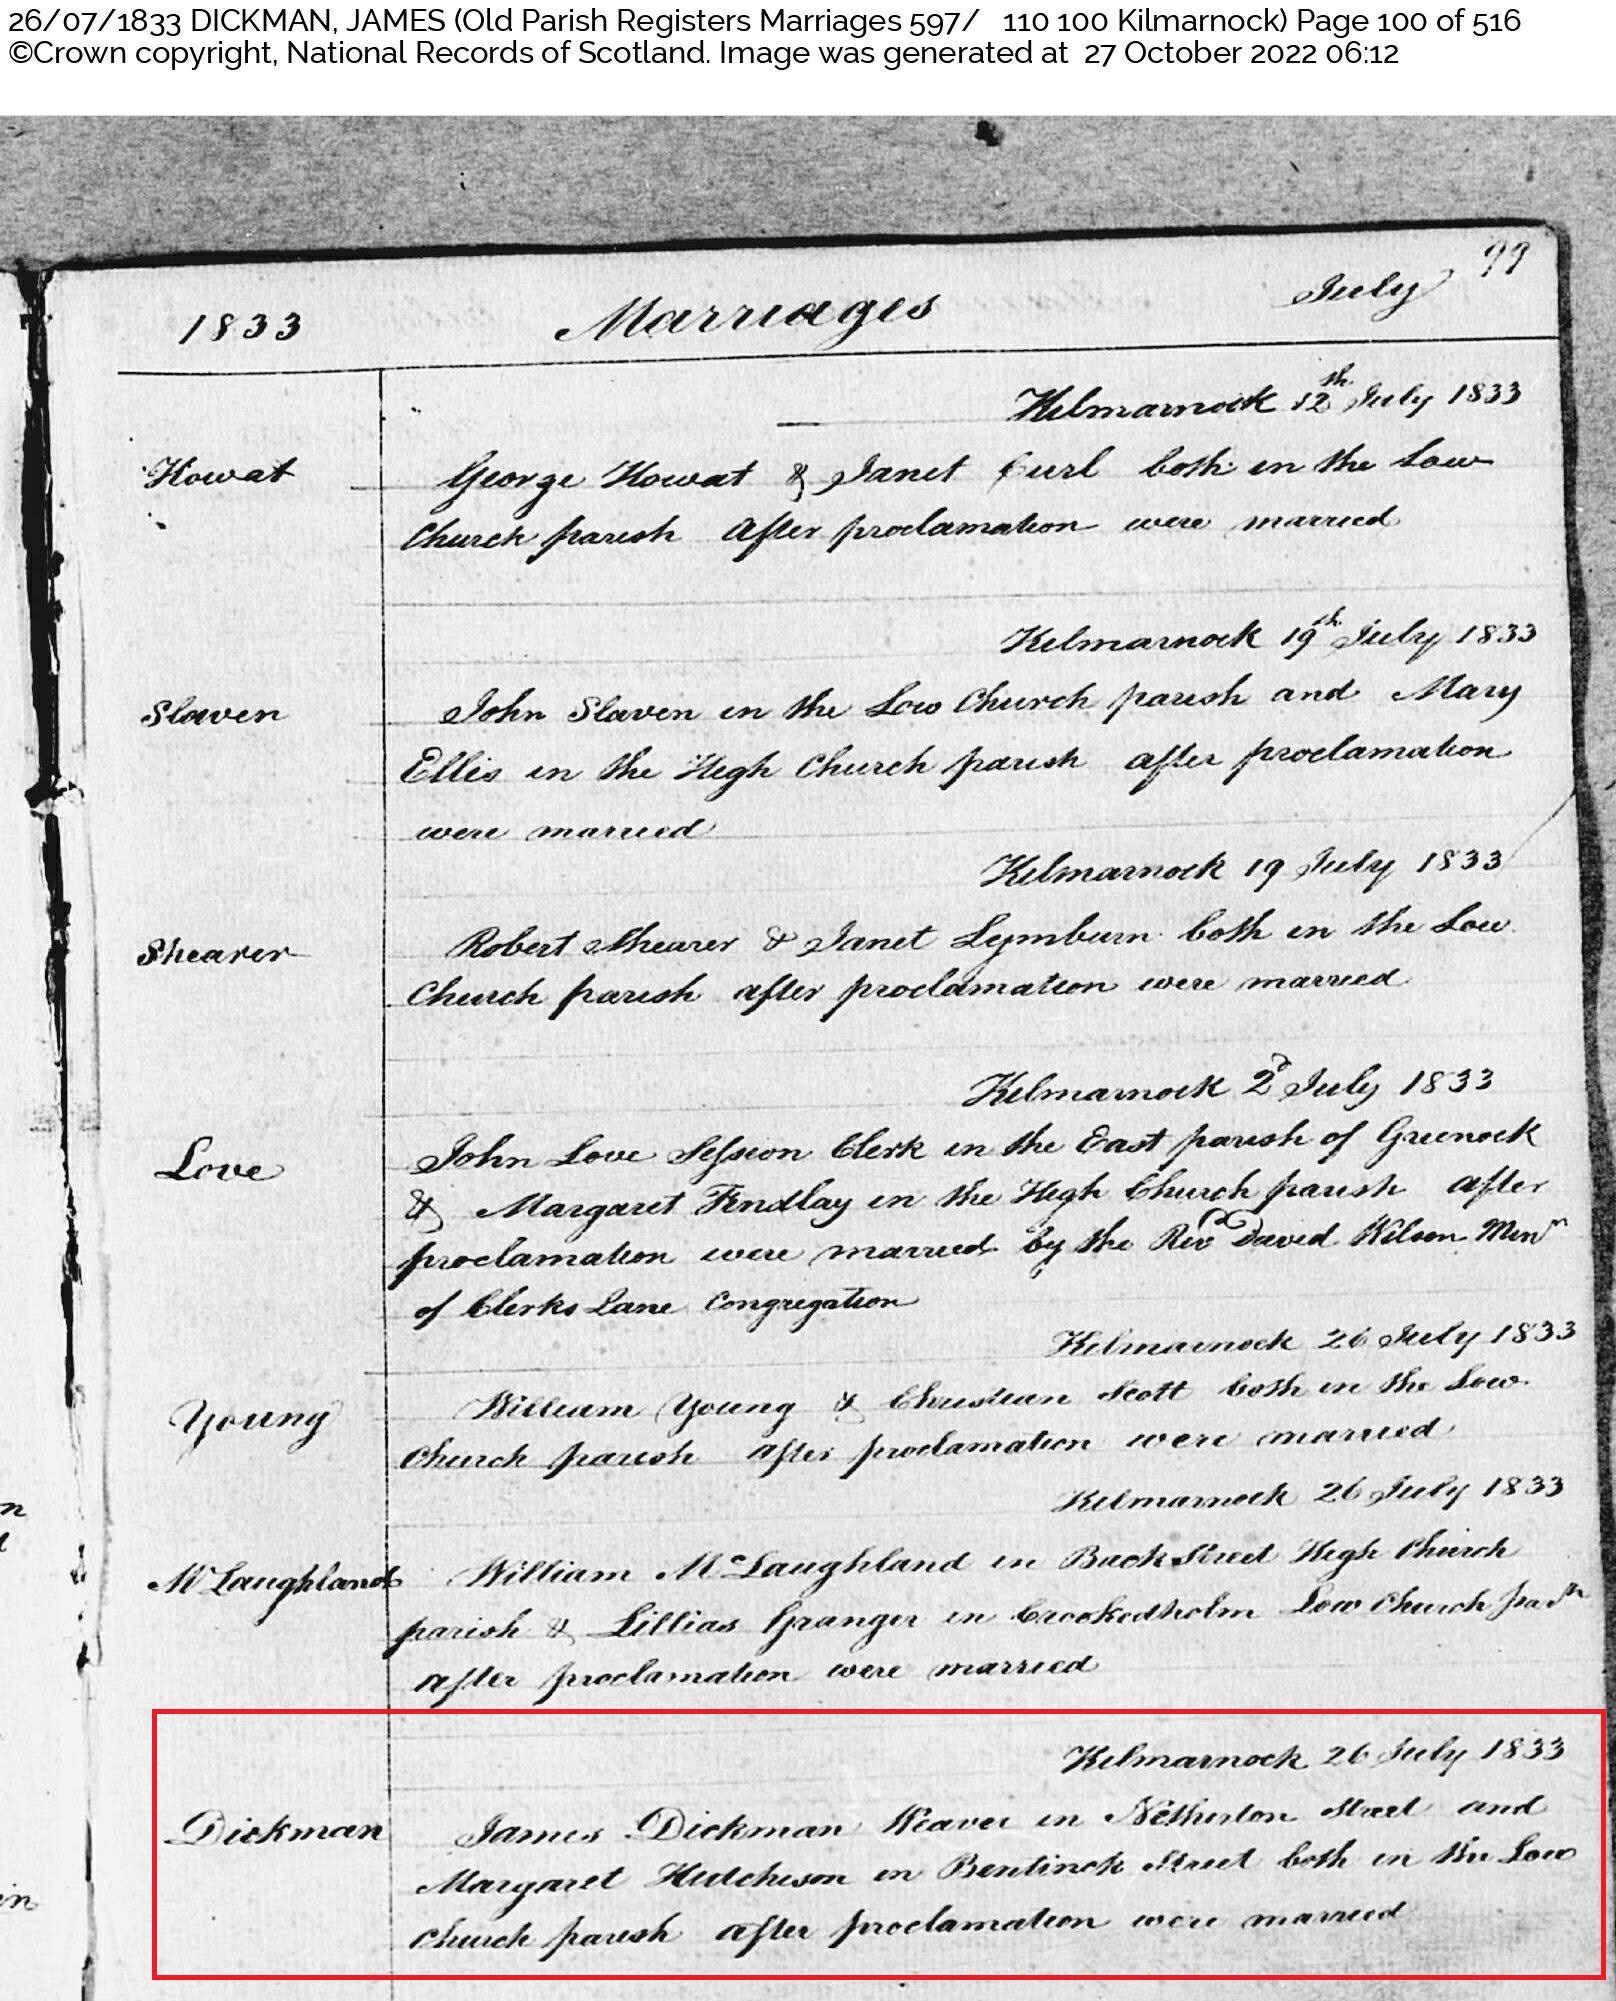 26/07/1833 DICKMAN, JAMES (Old Parish Registers Marriages 597/ 110 100 Kilmarnock) Page 100 of 516
©Crown copyright, National Records of Scotland. Image was generated at 27 October 2022 06:12
99
1833 Marriages July
Kilmarnock 12th July 1833
Howat George Howat & Janet Curl both in the Low
Church parish After proclamation were married
Kilmarnock 19th July 1833
Slaven John Slaven in the Low Church parish and Mary
Ellis in the High Church parish after proclamation
were married
Kilmarnock 19 July 1833
Shearer Robert Shearer & Janet Lymburn both in the Low
Church parish after proclamation were married
Kilmarnock 2d July 1833
Love John Love Session Clerk in the East parish of Greenock
& Margaret Findlay in the High Church parish after
proclamation were married by the Revd David Wilson Minr
of Clerks Lane Congregation
Kilmarnock 26 July 1833
Young William Young & Christian Scott both in the Low
Church parish after proclamation were married
Kilmarnock 26 July 1833
McLaughland William McLaughland in Back Street High Church
parish & Lillias Granger in Crookedholm Low Church parsh
after proclamation were married
Kilmarnock 26 July 1833
Dickman James Dickman Weaver in Netherton Street and
Margaret Hutcheson in Bentinck Street both in the Low
Church parish after proclamation were married
n
in